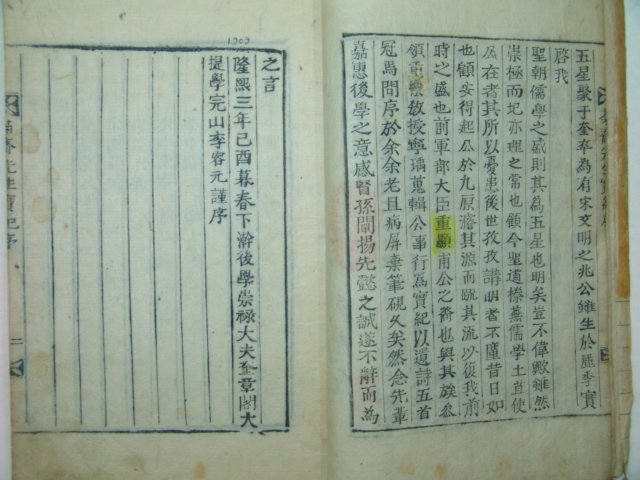 五星聚于奎卒為有宋文明之兆公雖生於麗季實
啓我
聖朝儒學之盛則其為五星也明矣豈不偉歟雖然
崇極而圮亦理之常也顧今聖道榛蕪儒學土苴使
公在者其所以憂患後世孜孜講明者不啻昔日如
也顧安得起公於九原濬其源而疏其流以復我前
時之盛也前軍部大臣重顯甫公之裔也與其族叅
領重燮敎授寧瑀蒐輯公事行為實紀以遺詩五首
冠焉問序於余余老且病屏棄筆硯久矣然念先輩
嘉惠後學之意感賢孫闡揚先懿之誠遂不辭而為
1909
之言
隆熙三年己酉暮春下澣後學崇祿大夫奎章閣大
提學完山李容元謹序
齋先生實紀序
二